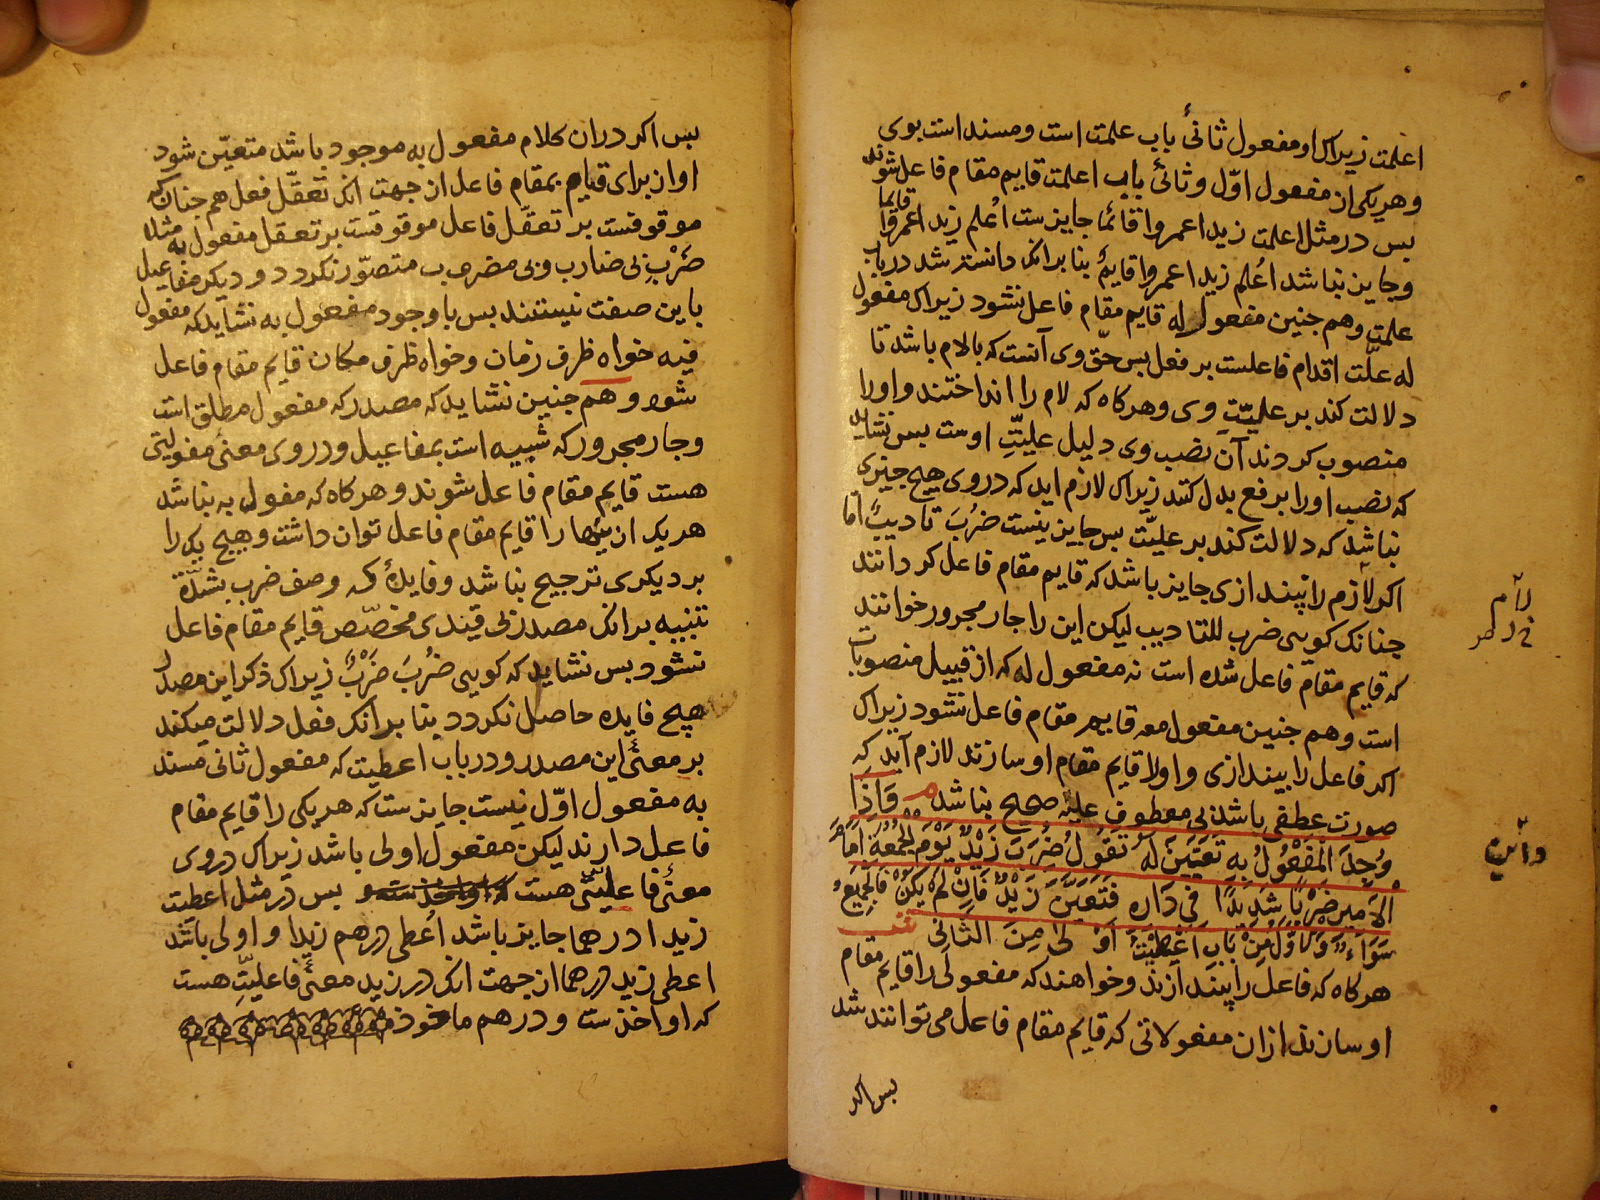 اعلمت زیراک او مفعول ثانئ باب علمت است و مسند است بوی
و هر یکی ان مفعول اوّل و ثانئ باب اعلمت قایم مقام فاعل شوند
بس در مثل اعلمت زیدا عمروا قائما جایزست اُعلم زید اعمروا قایما
و جایز نباشد اُعلم زیدا عمروا قایمٌ بنا برانک دانسته شد در باب
علمت و هم جنین مفعول له قایم مقام فاعل نشود زیراک مفعول
له علّت اقدام فاعلست بر فعل بس حقّ وی آنست که بالام باشد تا
دلالت کند بر علیّت وی و هر کاه که لام را انداختند و اورا
منصوب کردند آن نصب وی دلیل علیّتِ اوست بس نشاید
که نصب اورا برفع بدل کنند زیراک لازم اید که در وی هیج جیزی
نباشد که دلالت کند بر علیّت بس جایز نیست ضُرِبَ تادیبٌ اما
اکر لام را بیندازی جایز باشد که قایم مقام فاعل کردانند
جنانک کویی ضرب للتادیب لیکن این را جار مجرور خوانند
که قایم مقام فاعل شده است نه مفعول له که از قبیل منصوبات
است و هم جنین مفعول معه قایم مقام فاعل نشود زیراک
اکر فاعل را بیندازی و اورا قایم مقام او سازند لازم آید که
صورت عطفی باشد بی معطوف علیه صحیح نباشد م وَاِذَا
وُجِدَ الْمَفْعُولُ بِهِ تَعَيَّنَ لَهُ تَقُولُ ضُرِبَ زَيْدٌ يَوْمَ الْجُمُعَةِ اَمَامَ
الْاَمِيرِ ضَرْبًا شَدِيدًا فِي دَارِهِ فَتَعَيَّنَ زَيْدٌ فَاِنْ لَمْ يَكُنْ فَالْجَمِيعُ
سَوَاءٌ وَالْاَوَّلُ مِنْ بَابِ اَعْطَيْتُ اَوْلَى مِنَ الثَّانِي ش
هر کاه که فاعل را بیندازند و خواهند که مفعولی را قایم مقام
او سازند ازان مفعولاتی که قایم مقام فاعل می توانند شد
بس اکر
بس اکر دران کلام مفعول به موجود باشد متعیّن شود
او از برای قیام بمقام فاعل از جهت انک تعقّل فعل هم جنان که
موقوفست بر تعقّل فاعل موقوفست بر تعقل مفعول به مثلا
ضَرْب بی ضارب و بی مضروب متصوّر نکردد و دیکر مفاعیل
باین صفت نیستند بس با وجود مفعول به نشاید که مفعول
فیه خواه ظرف زمان و خواه ظرف مکان قایم مقام فاعل
شود و هم جنین نشاید که مصدر که مفعول مطلق است
و جار مجرور که شبیه است بمفاعیل و در وی معنئ مفعولیتی
هست قایم مقام فاعل شوند و هر کاه که مفعول به نباشد
هر یک از اینها را قایم مقام فاعل توان داشت و هیچ یک را
بر دیکری ترجیح نباشد و فایدهٔ که وصف ضرب بشدّة
تنبیه برانک مصدر بی قیدی مخصّص قایم مقام فاعل
نشود بس نشاید که کویی ضُرِبَ ضَرْبٌ زیراک ذکر این مصدر
هیچ فایده حاصل نکردد بنا برانک فعل دلالت میکند
بر معنئ این مصدر و در باب اعطیت که مفعول ثانی مسند
به مفعول اوّل نیست جایزست که هر یکی را قایم مقام
فاعل دارند لیکن مفعول اولی باشد زیراک در وی
معنئ فاعلیتی هست بس در مثل اعطیت
زیدا درهما جایز باشد اُعطی درهم زیدا و اولی باشد
اعطی زید درهما از جهت انک در زید معنئ فاعلیّتِ هست
که او اخذست و درهم ماخوذ